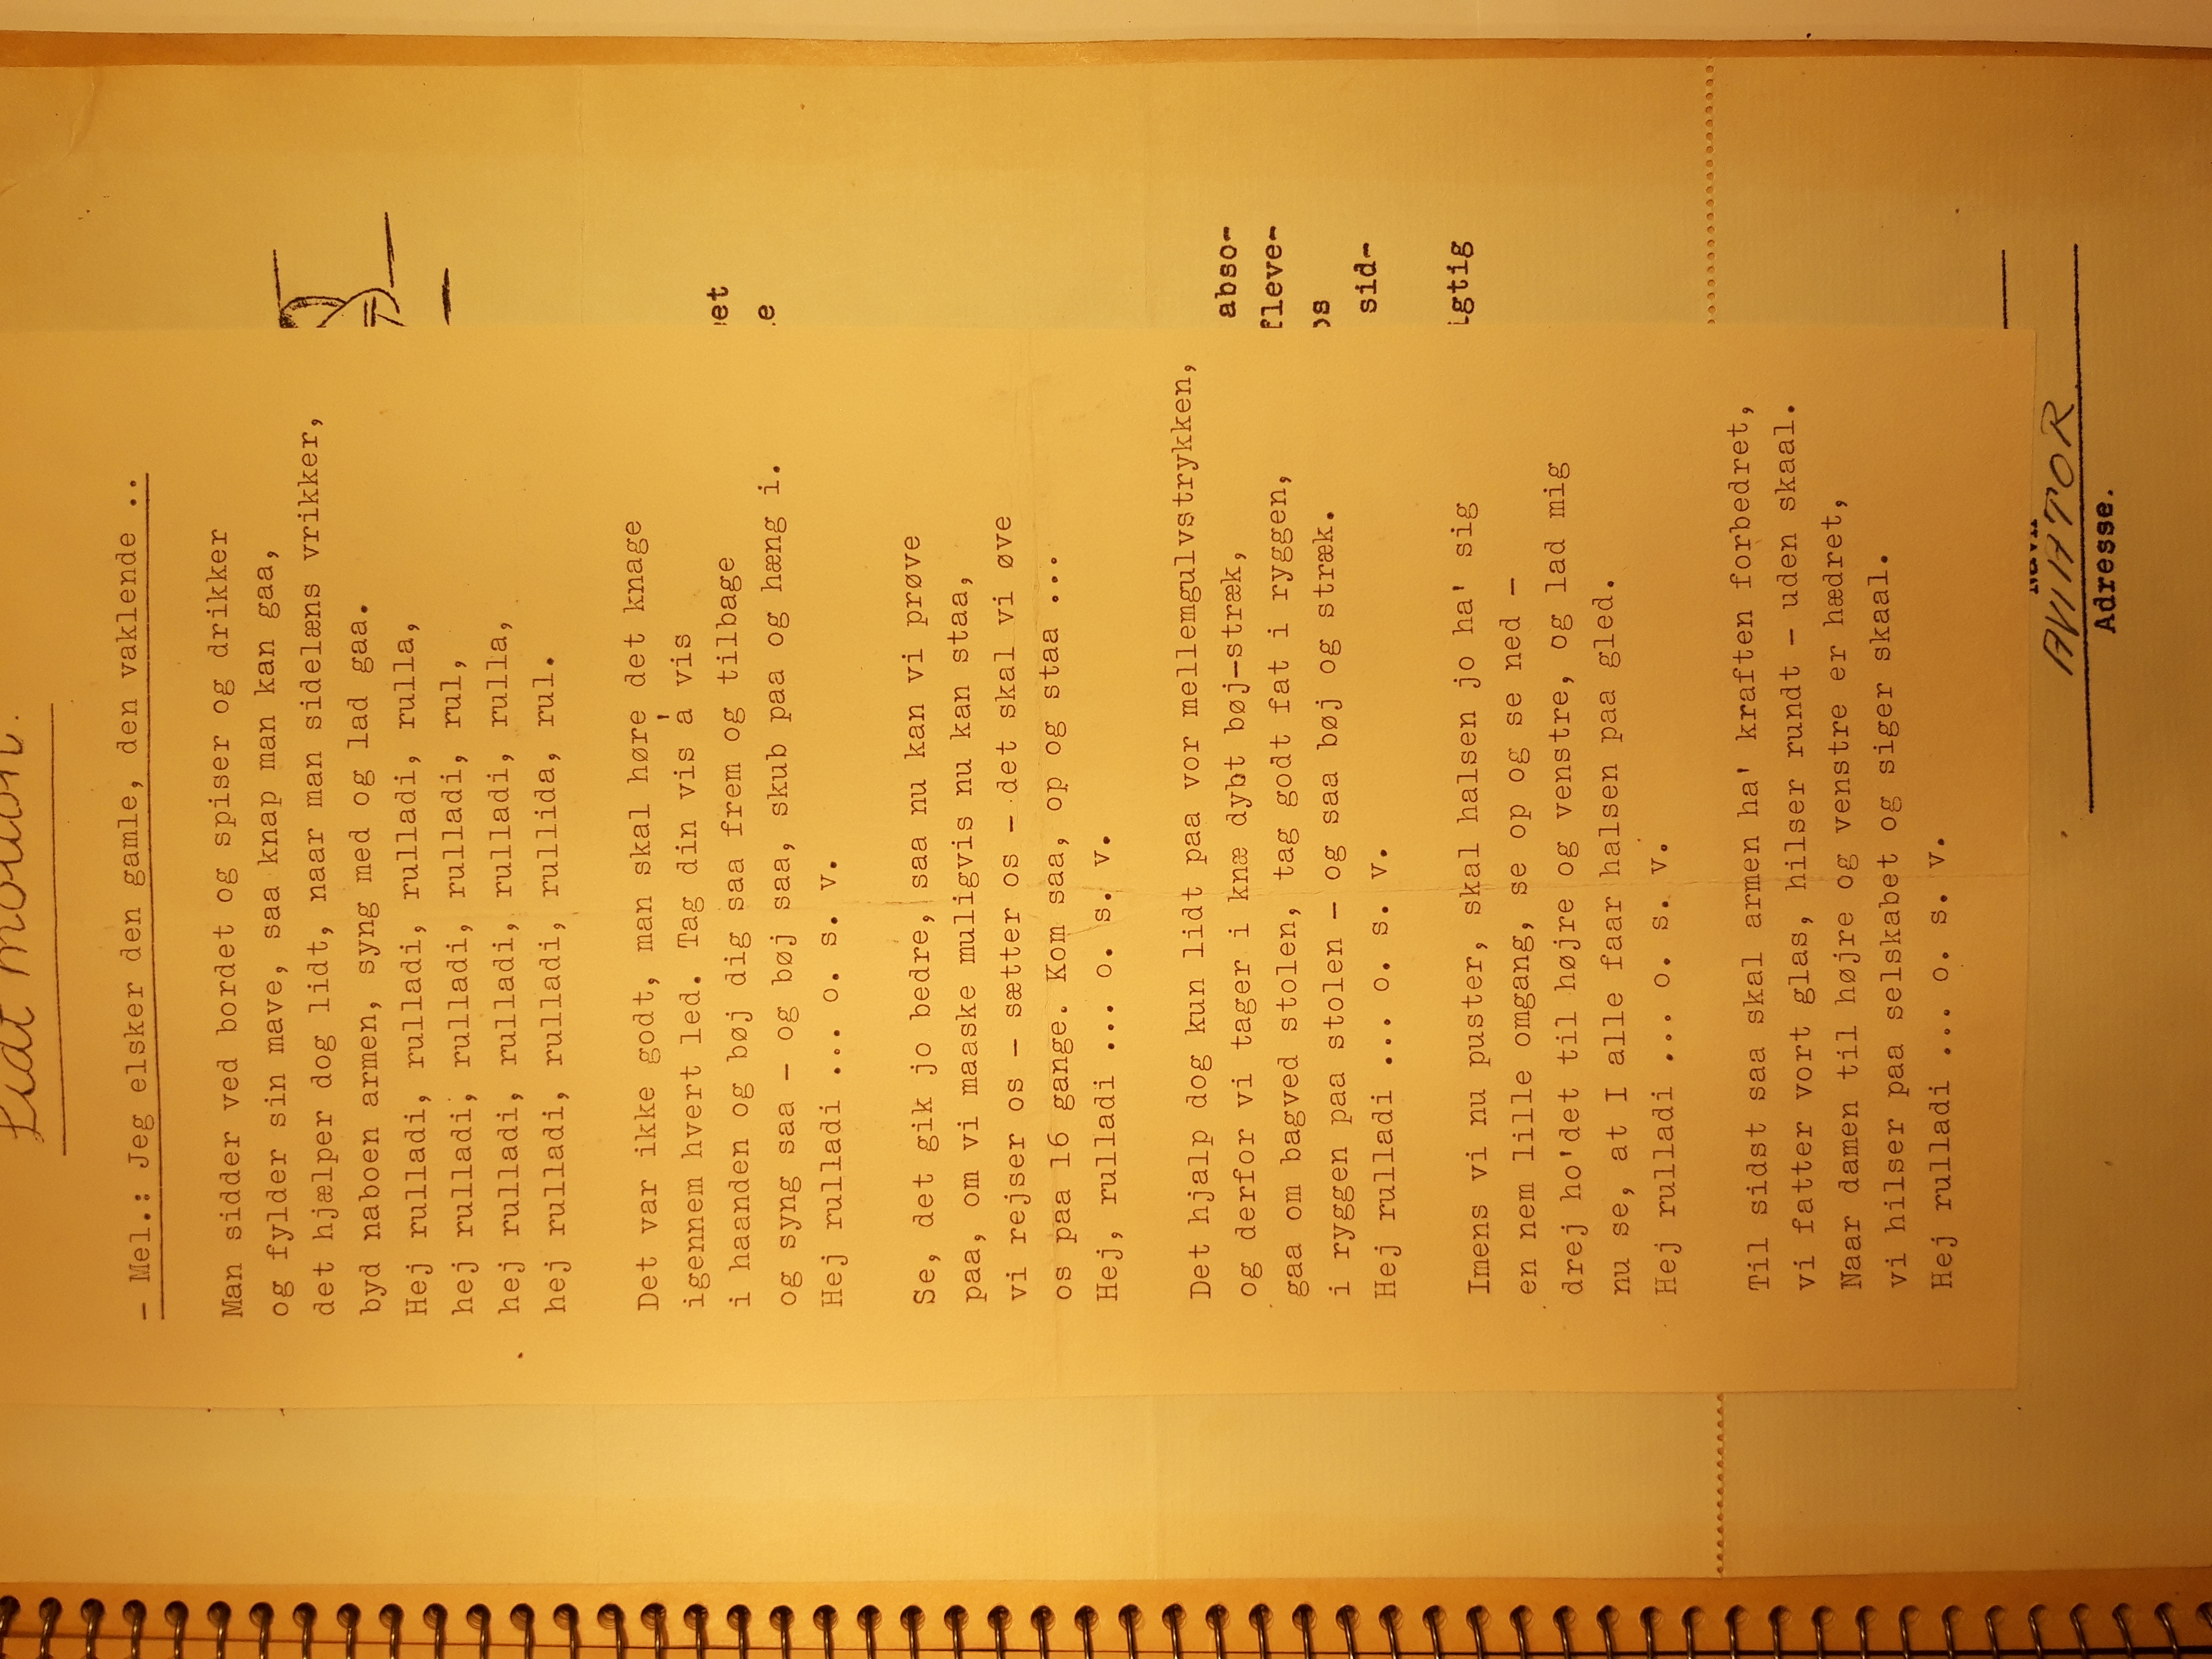 Lidt motion.
- Mel.: Jeg elsker den gamle, den vaklende ..
Man sidder ved bordet og spiser og drikker
og fylder sin mave, saa knap man kan gaa,
det hjælper dog lidt, naar man sidelæns vrikker,
byd naboen armen, syng med og lad gaa.
Hej rulladi, rulladi, rulladi, rulla,
hej rulladi, rulladi, rulladi, rul,
hej rulladi, rulladi, rulladi, rulla,
hej rulladi, rulladi, rullida, rul.
Det var ikke godt, man skal høre det knage
igennem hvert led. Tag din vis á vis
i haanden og bøj dig saa frem og tilbage
og syng saa - og bøj saa, skub paa og hæng i.
Hej rulladi ... o. s. v.
Se, det gik jo bedre, saa nu kan vi prøve
paa, om vi maaske muligvis nu kan staa,
vi rejser os - sætter os - det skal vi øve
os paa 16 gange. Kom saa, op og staa ...
Hej, rulladi ... o. s. v.
Det hjalp dog kun lidt paa vor mellemgulvstrykken,
og derfor vi tager i knæ dybt bøj-stræk,
gaa om bagved stolen, tag godt fat i ryggen,
i ryggen paa stolen - og saa bøj og stræk.
Hej rulladi ... o. s. v.
Imens vi nu puster, skal halsen jo ha' sig
en nem lille omgang, se op og se ned -
drej ho'det til højre og venstre, og lad mig
nu se, at I alle faar halsen paa gled.
Hej rulladi ... o. s. v.
Til sidst saa skal armen ha' kraften forbedret,
vi fatter vort glas, hilser rundt - uden skaal.
Naar damen til højre og venstre er hædret,
vi hilser paa selskabet og siger skaal.
Hej rulladi ... o. s. v.
et
e
abso-
fleve-
os
sid-
igtig
AVIATOR
Adresse.